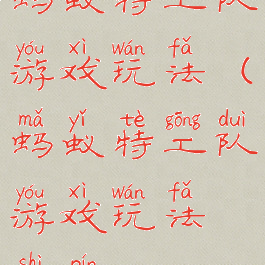 蚂蚁特工队
yóu xì wán fǎ
游戏玩法（
mǎ yǐ tè gōng duì
蚂蚁特工队
yóu xì wán fǎ
游戏玩法
shì pín